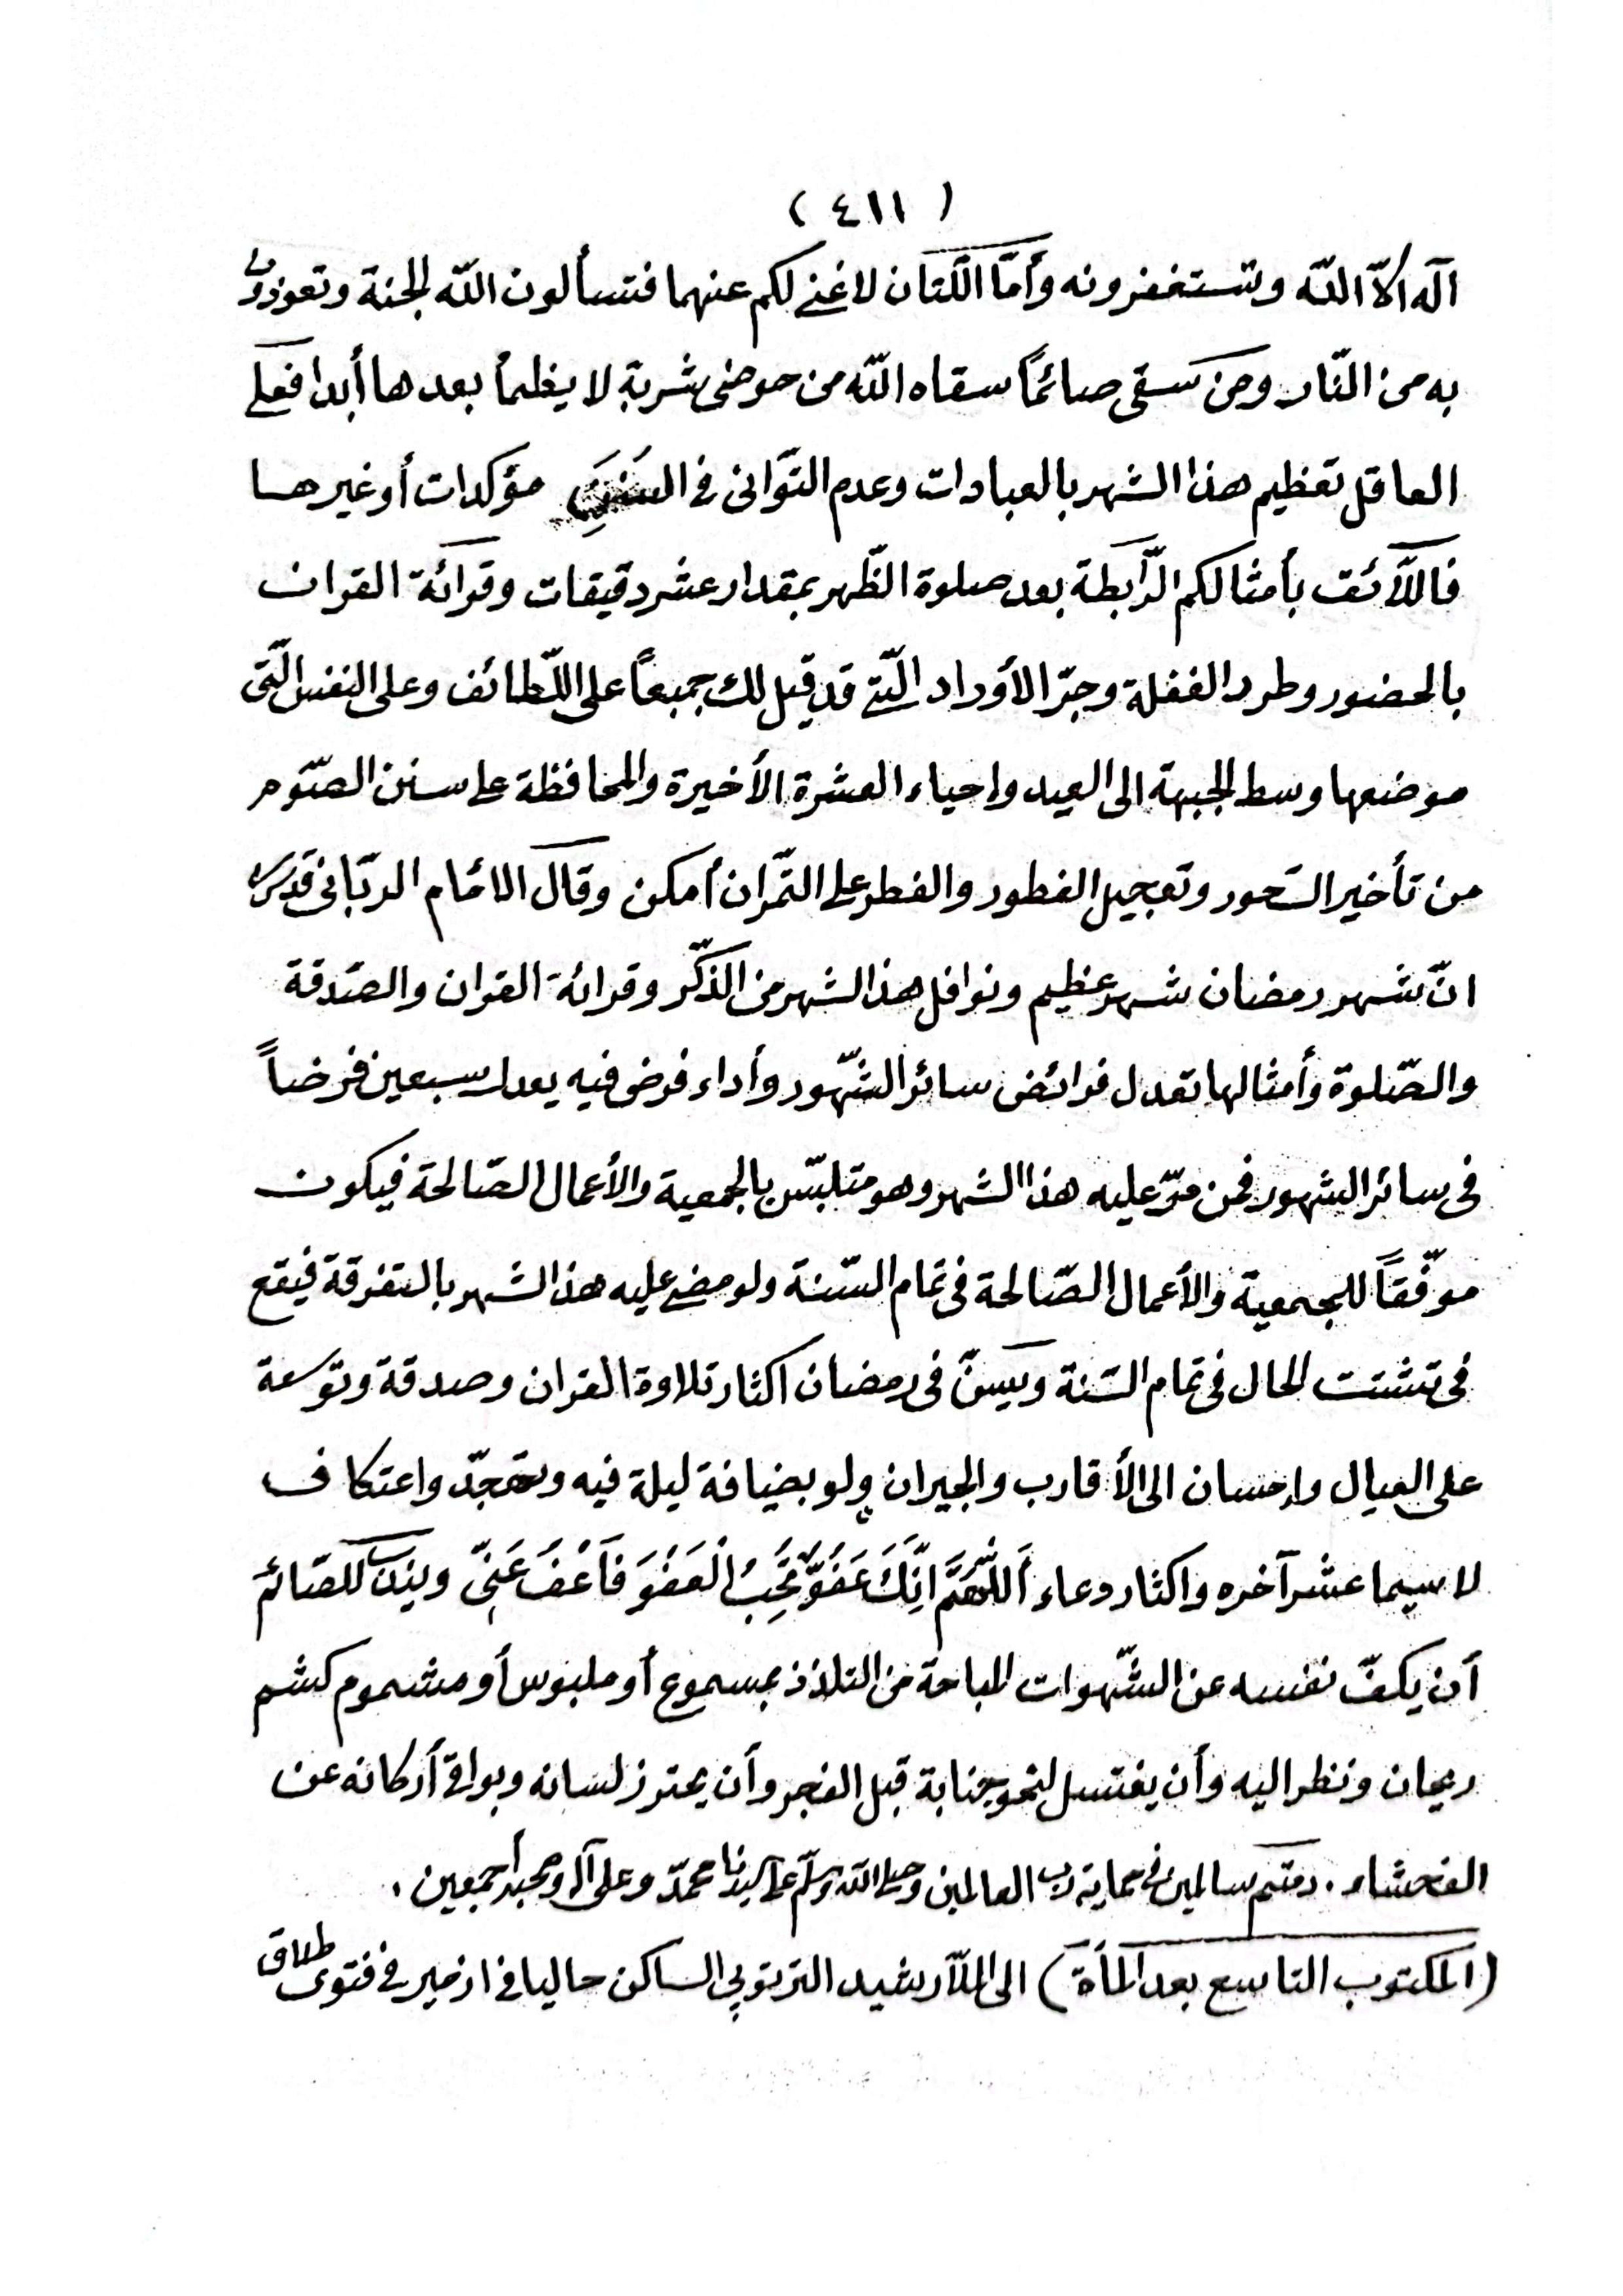 ( ٤١١ )
اله الاّ اللّه وتستغفرونه وأمّا اللّتان لا غنى لكم عنهما فتسألون اللّه الجنة وتعوذون
به من النّار ومن سقى صائمًا سقاه اللّه من حوضى شربة لا يظمأ بعدها أبدا فعلى
العاقل تعظيم هذا الشهر بالعبادات وعدم التوّانى فى السنن مؤكدات أو غيرها
فاللّائق بأمثالكم الرّابطة بعد صلوة الظّهر بمقدار عشر دقيقات وقرائة القران
بالحضور وطرد الغفلة وجرّ الأوراد الّتى قد قيل لك جميعاً على اللّطائف وعلى النفس الّتى
موضعها وسط الجبهة الى العيد واحياء العشرة الأخيرة والمحافظة على سنن الصّوم
من تأخير السّحور وتعجيل الفطور والفطر على التّمر ان أمكن وقال الامام الربّانى قدّسره
انّ شهر رمضان شهر عظيم ونوافل هذا الشهر من الذّكر وقرائة القران والصّدقة
والصّلوة وأمثالها تعدل فرائض سائر الشّهور وأداء فرض فيه يعدل سبعين فرضاً
فى سائر الشهور فمن مرّ عليه هذا الشهر وهو متلبّس بالجمعية والأعمال الصّالحة فيكون
موفّقاً للجمعية والأعمال الصّالحة فى تمام السّنة ولو مضى عليه هذا الشهر بالتفرقة فيقع
فى تشتت الحال فى تمام السّنة ويسنّ فى رمضان اكثار تلاوة القران وصدقة وتوسعة
على العيال واحسان الى الأقارب والجيران ولو بضيافة ليلة فيه وتهجّد واعتكاف
لا سيما عشر آخره واكثار دعاء أَللّهُمَّ اِنَّكَ عَفُوٌّ تُحِبُّ الْعَفْوَ فَاعْفُ عَنِّى ويندب للصّائم
أن يكفّ نفسه عن الشّهوات المباحة من التلذذ بمسموع أو ملبوس أو مشموم كشم
ريحان ونظر اليه وأن يغتسل لنحو جنابة قبل الفجر وأن يحترز لسانه وبواقى أركانه عن
الفحشاء . دمتم سالمين فى حماية رب العالمين وصلى اللّه وسلّم على سيدنا محمّد وعلى آله وصحبه أجمعين .
(المكتوب التاسع بعد المأة) الى الملّا رشيد التربتوپى الساكن حاليا فى ازمير فى فتوى طلاق